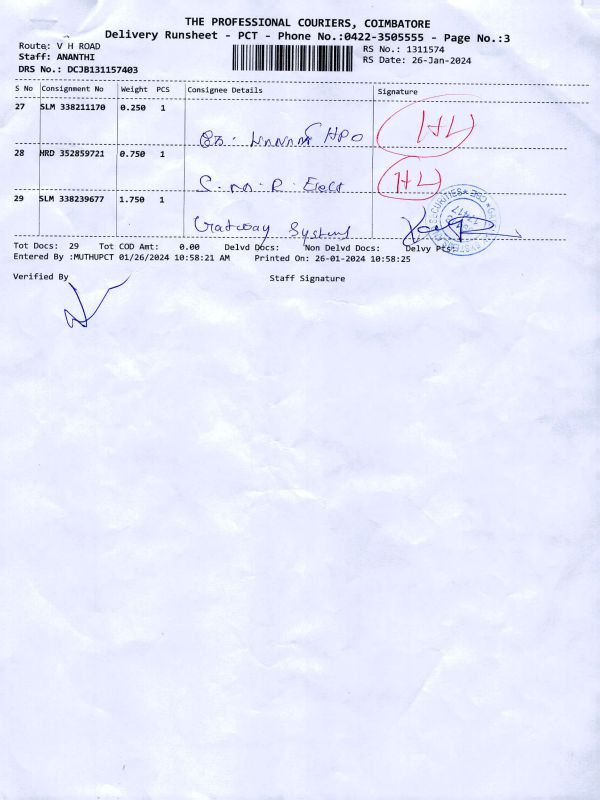 THE PROFESSIONAL COURIERS, COIMBATORE
Delivery Runsheet - PCT - Phone No.:0422-3505555 - Page No.:3
Route: V H ROAD
Staff: ANANTHI
DRS No.: DCJB131157403
RS No.: 1311574
RS Date: 26-Jan-2024
S No Consignment No Weight PCS Consignee Details Signature
27 SLM 338211170 0.250 1
HPO HL
28 HRD 352859721 0.750 1
S. M. R. Elect HL
29 SLM 338239677 1.750 1
Gateway Systems
Tot Docs: 29 Tot COD Amt: 0.00 Delvd Docs: Non Delvd Docs: Delvy Pts:
Entered By :MUTHUPCT 01/26/2024 10:58:21 AM Printed On: 26-01-2024 10:58:25
Verified By Staff Signature